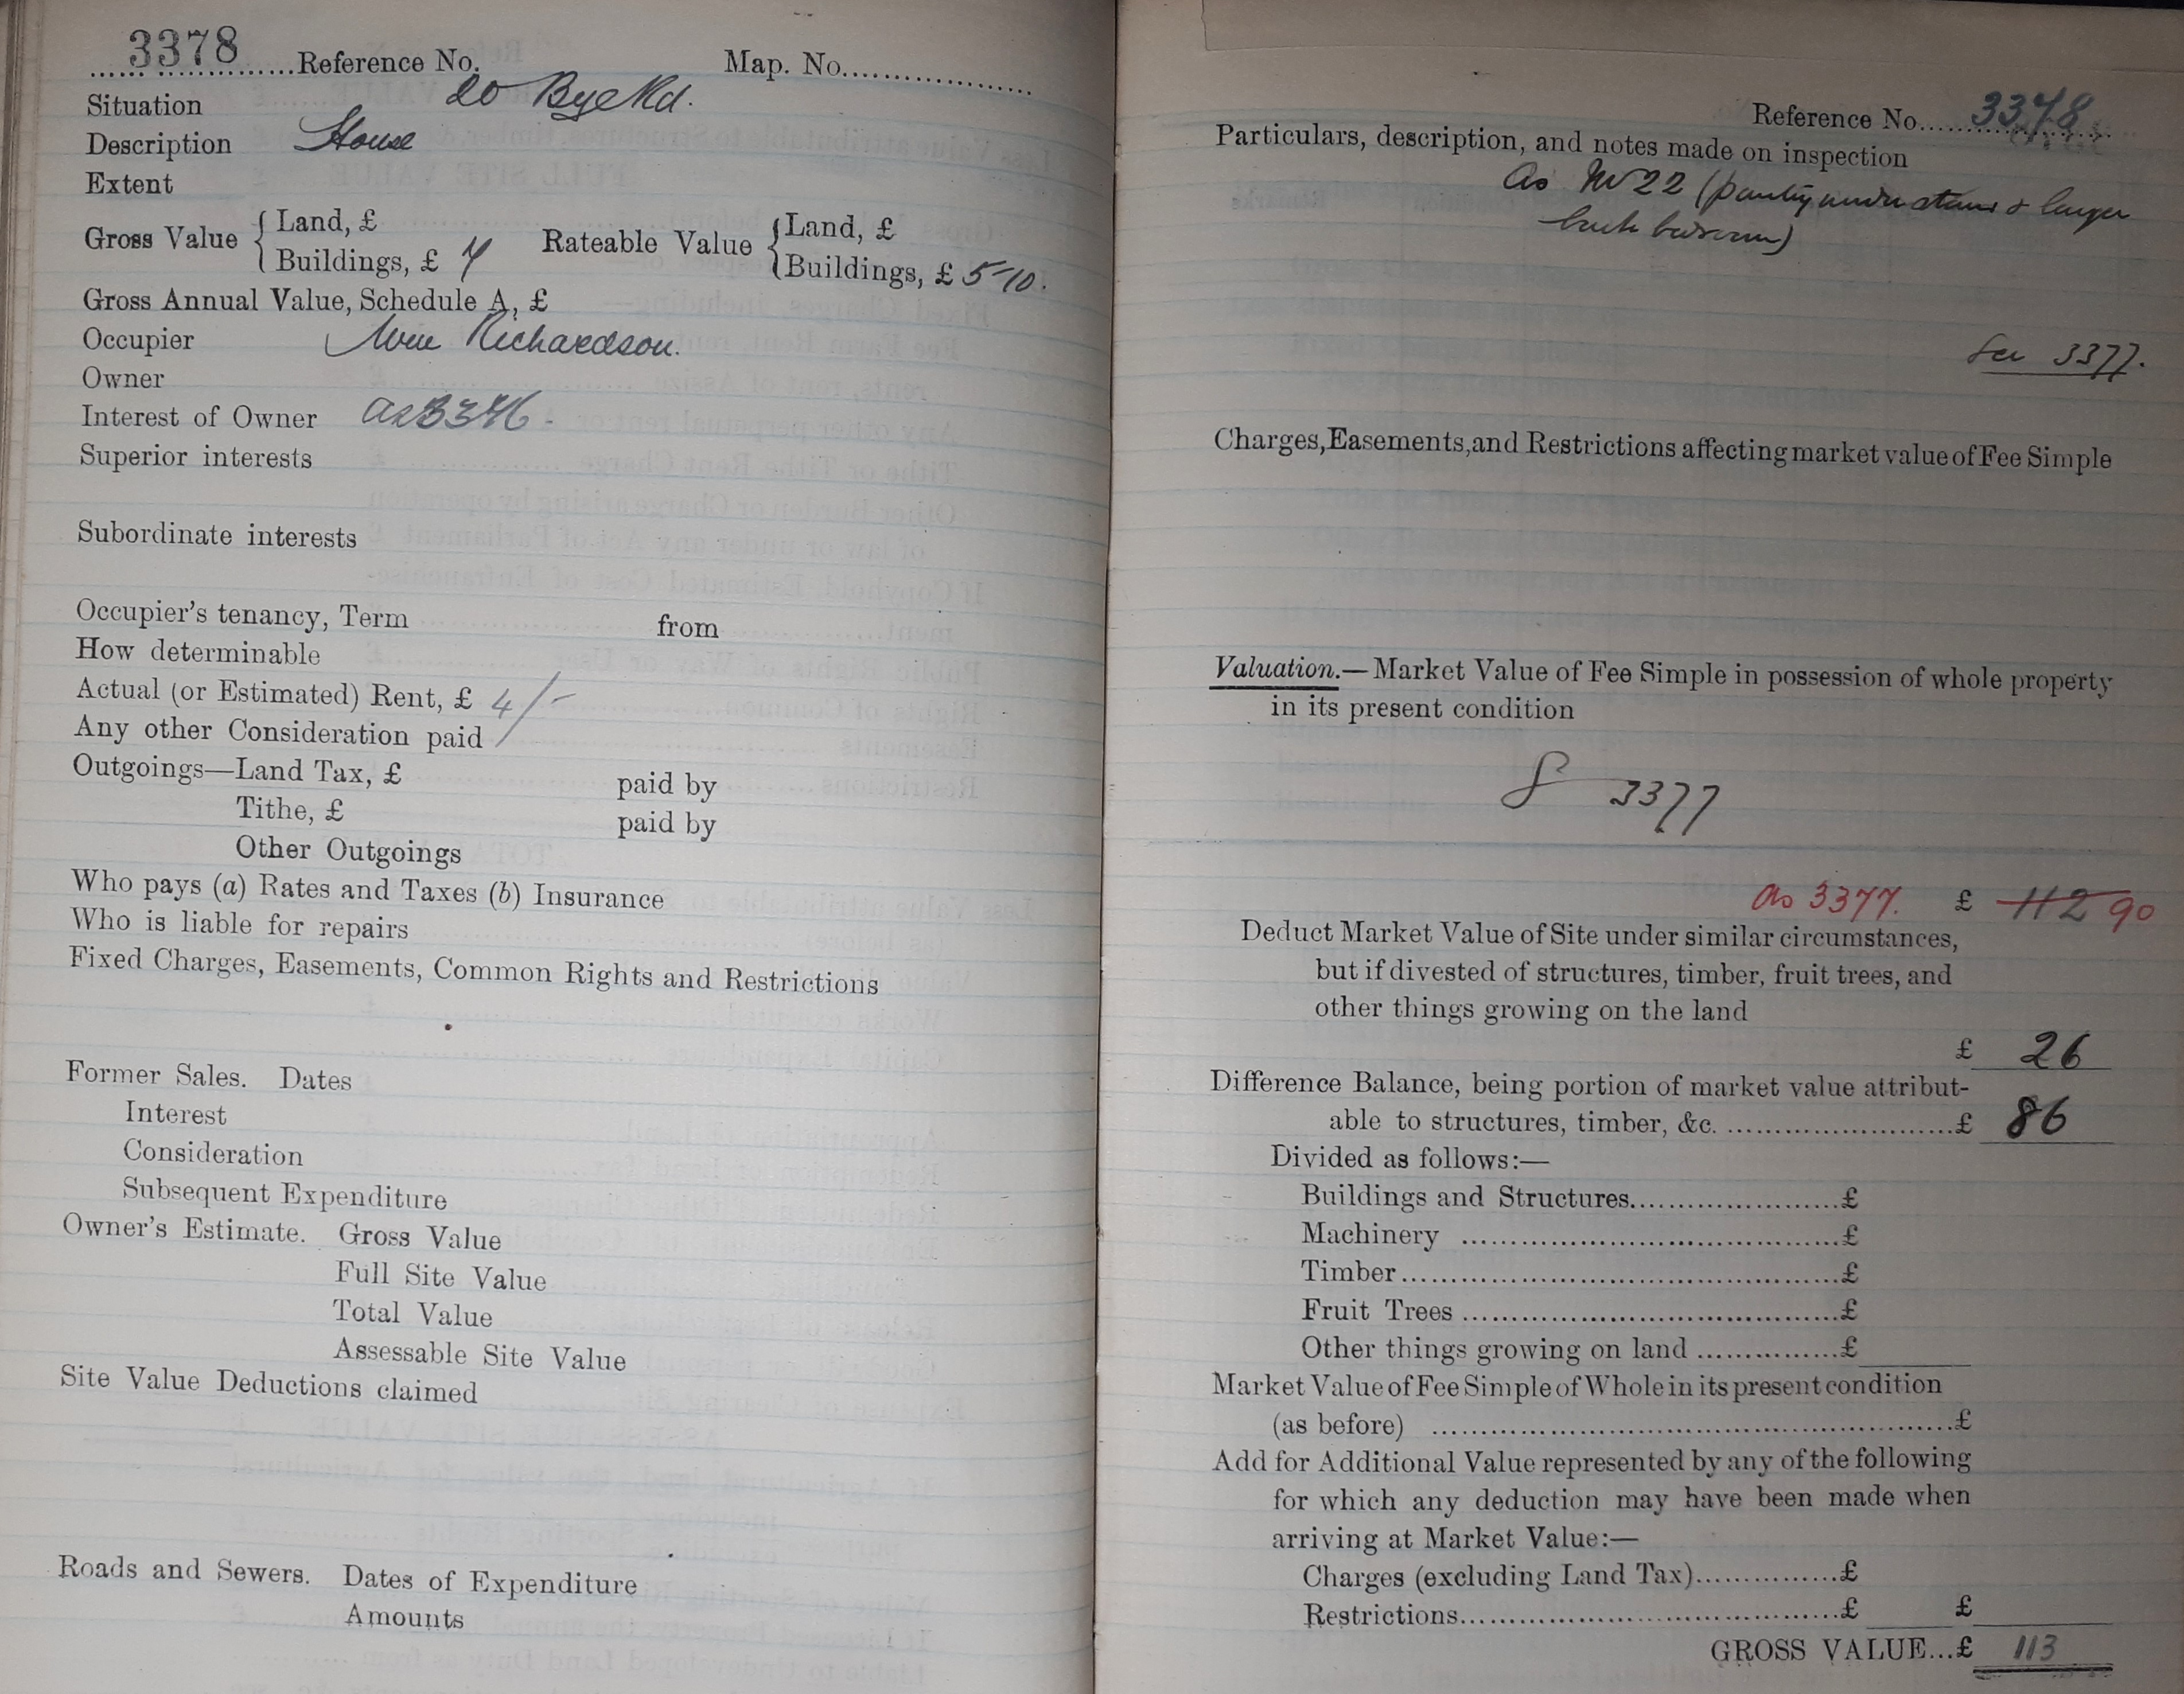 3378 Reference No. Map. No.
Situation 20 Bye Rd.
Description House
Extent
Gross Value { Land, £ Rateable Value { Land, £
Buildings, £ 7 Buildings, £ 5-10.
Gross Annual Value, Schedule A, £
Occupier Wm Richardson.
Owner
Interest of Owner as 3376.
Superior interests
Subordinate interests
Occupier's tenancy, Term from
How determinable
Actual (or Estimated) Rent, £ 4/-
Any other Consideration paid
Outgoings—Land Tax, £ paid by
Tithe, £ paid by
Other Outgoings
Who pays (a) Rates and Taxes (b) Insurance
Who is liable for repairs
Fixed Charges, Easements, Common Rights and Restrictions
Former Sales. Dates
Interest
Consideration
Subsequent Expenditure
Owner's Estimate. Gross Value
Full Site Value
Total Value
Assessable Site Value
Site Value Deductions claimed
Roads and Sewers. Dates of Expenditure
Amounts
Reference No. 3378
Particulars, description, and notes made on inspection
As No 22 (pantry under stairs & larger
back bedroom)
See 3377.
Charges, Easements, and Restrictions affecting market value of Fee Simple
Valuation.—Market Value of Fee Simple in possession of whole property
in its present condition
3377
as 3377. £ 112 90
Deduct Market Value of Site under similar circumstances,
but if divested of structures, timber, fruit trees, and
other things growing on the land
£ 26
Difference Balance, being portion of market value attribut-
able to structures, timber, &c. £ 86
Divided as follows:—
Buildings and Structures £
Machinery £
Timber £
Fruit Trees £
Other things growing on land £
Market Value of Fee Simple of Whole in its present condition
(as before) £
Add for Additional Value represented by any of the following
for which any deduction may have been made when
arriving at Market Value:—
Charges (excluding Land Tax) £
Restrictions £ £
GROSS VALUE...£ 113